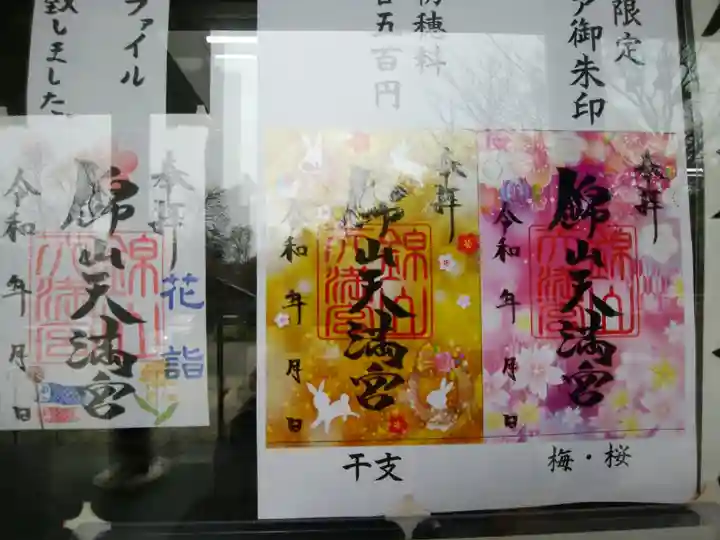 限定
ア御朱印
初穂料
五百円
ファイル
致しました
奉拝
錦山天満宮
令和 年 月 日
梅・桜
奉拝
錦山天満宮
令和 年 月 日
干支
奉拝
花詣
錦山天満宮
令和 年 月 日